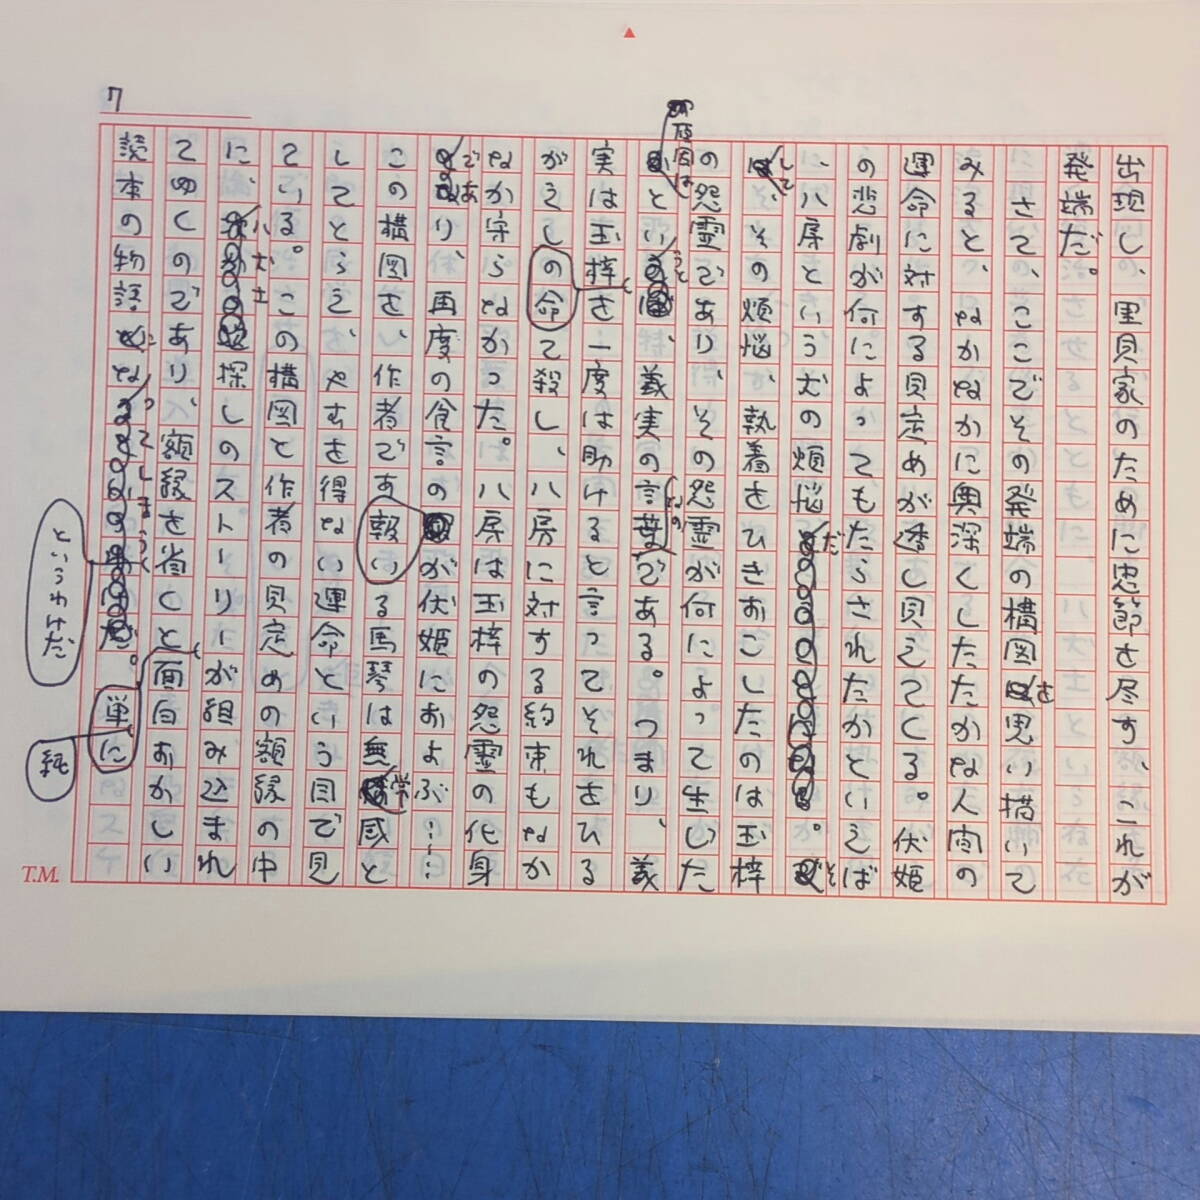 7
出現し、里見家のために忠節を尽す、これが
発端だ。
さて、ここでその発端の構図を思い描いて
みると、なかなかに奥深くしたたかな人間の
運命に対する見定めが透し見えてくる。伏姫
の悲劇が何によってもたらされたかといえば
、八房という犬の煩悩だ。そ
して、その煩悩、執着をひきおこしたのは玉梓
の怨霊であり、その怨霊が何によって生じた
かというと、義実の言葉なのである。つまり、義
実は玉梓を一度は助けると言ってそれをひる
がえしの命て殺し、八房に対する約束もなか
なか守らなかった。八房は玉梓の怨霊の化身
であり、再度の食言の が伏姫におよぶ……
この構図を、作者です報いる馬琴は無学感と
してとらえ、やむを得ない運命という目で見
ている。この構図と作者の見定めの額縁の中
に、八犬士探しのストーリーが組み込まれ
てゆくのであり、額縁を省くと面白おかしい
読本の物語になってしまうというわけだ。単に
純
T.M.